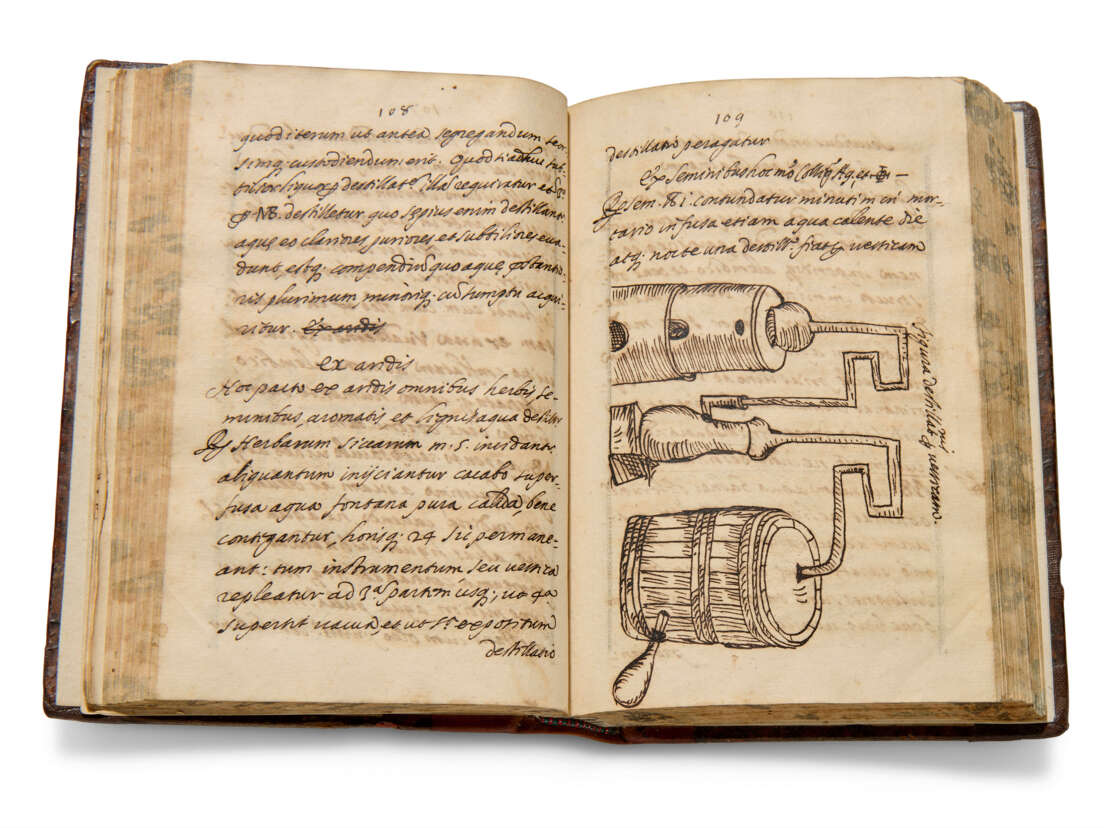 108
quod iterum ut antea segregandum, seor
simq custodiendum erit. Quod si adhuc sub
tilior liquor destillatus requiratur
NB. destilletur quo sepius enim destillantr
aque eo clariores puriores et subtiliores eva-
dunt, estq; compendium quo aque prestantio-
ris plurimum minoriq; cum sumptu acqui-
ritur. Ex aridis
Ex aridis
Hoc pacto ex aridis omnibus herbis, se-
minibus, aromatis et lignis aqua destillr
Herbarum siccarum m. 5. incidantr
aliquantum inijciantur cacabo super-
fusa aqua fontana pura calida, bene
contegantur, horisq; 24 sic permane-
ant: tum instrumentum seu vesica
repleatur ad 3ā partem usq; ut 4a
supersit vacua, et ut expositum
destillatio
109
destillatio peragatur
Ex Seminibus hoc mō Colligr Aq, et
sem. ℔ i. contundatur minutim in mor-
tario infusa etiam aqua calente die
atq; nocte una destillo fiatq; vesicam
Figura destillatris vesicam.